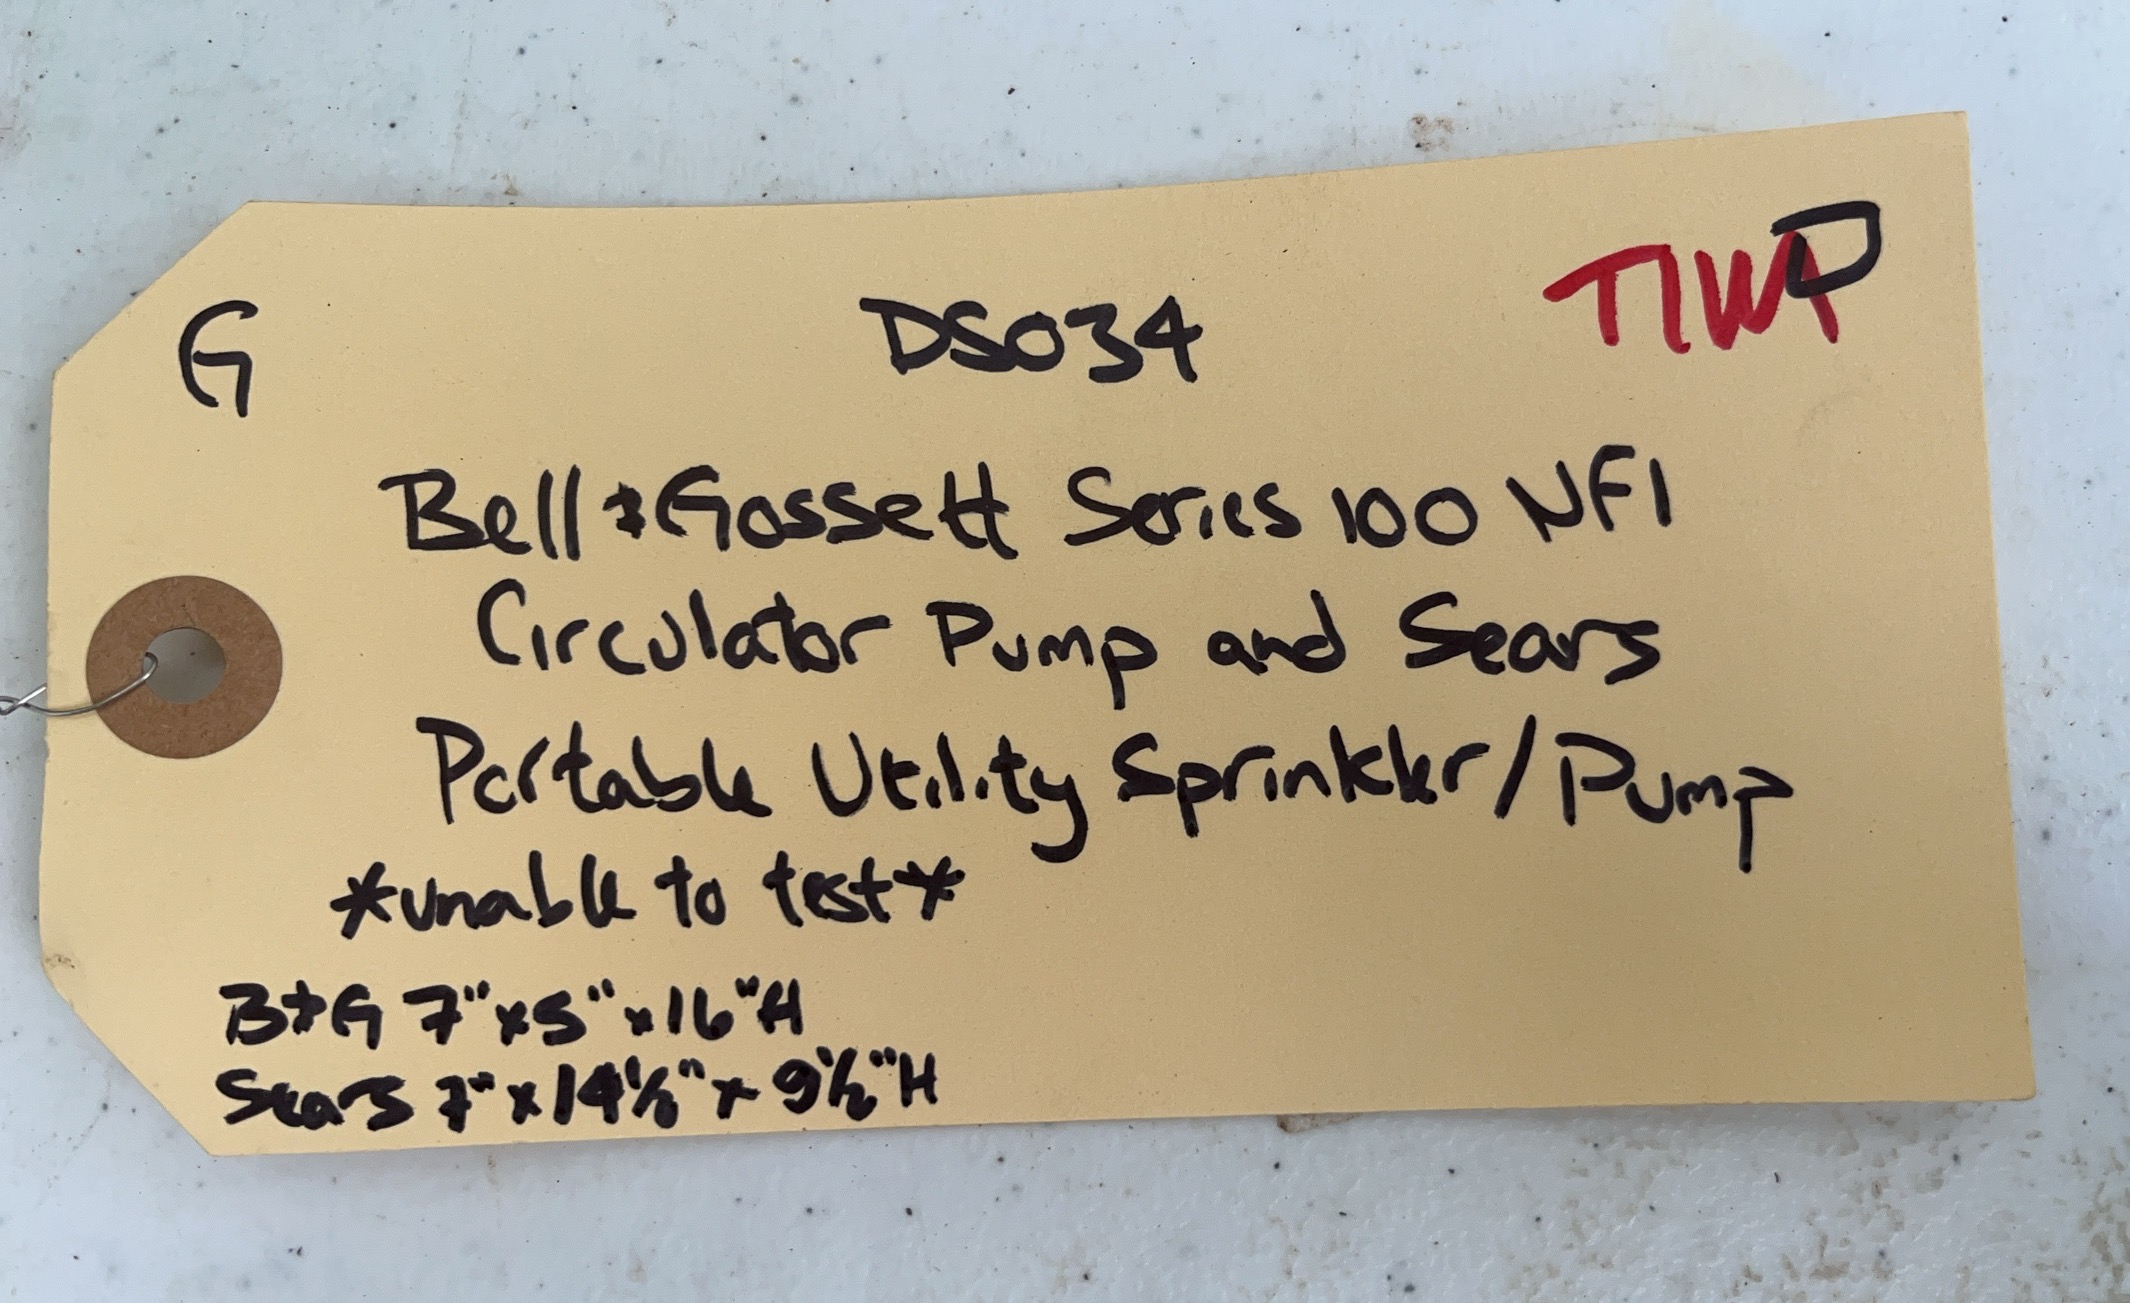 G DS034 TIWA D
Bell & Gossett Series 100 NFI
Circulator Pump and Sears
Portable Utility Sprinkler/Pump
*unable to test*
B+G 7" x 5" x 16" H
Sears 7" x 14 1/2" x 9 1/2" H